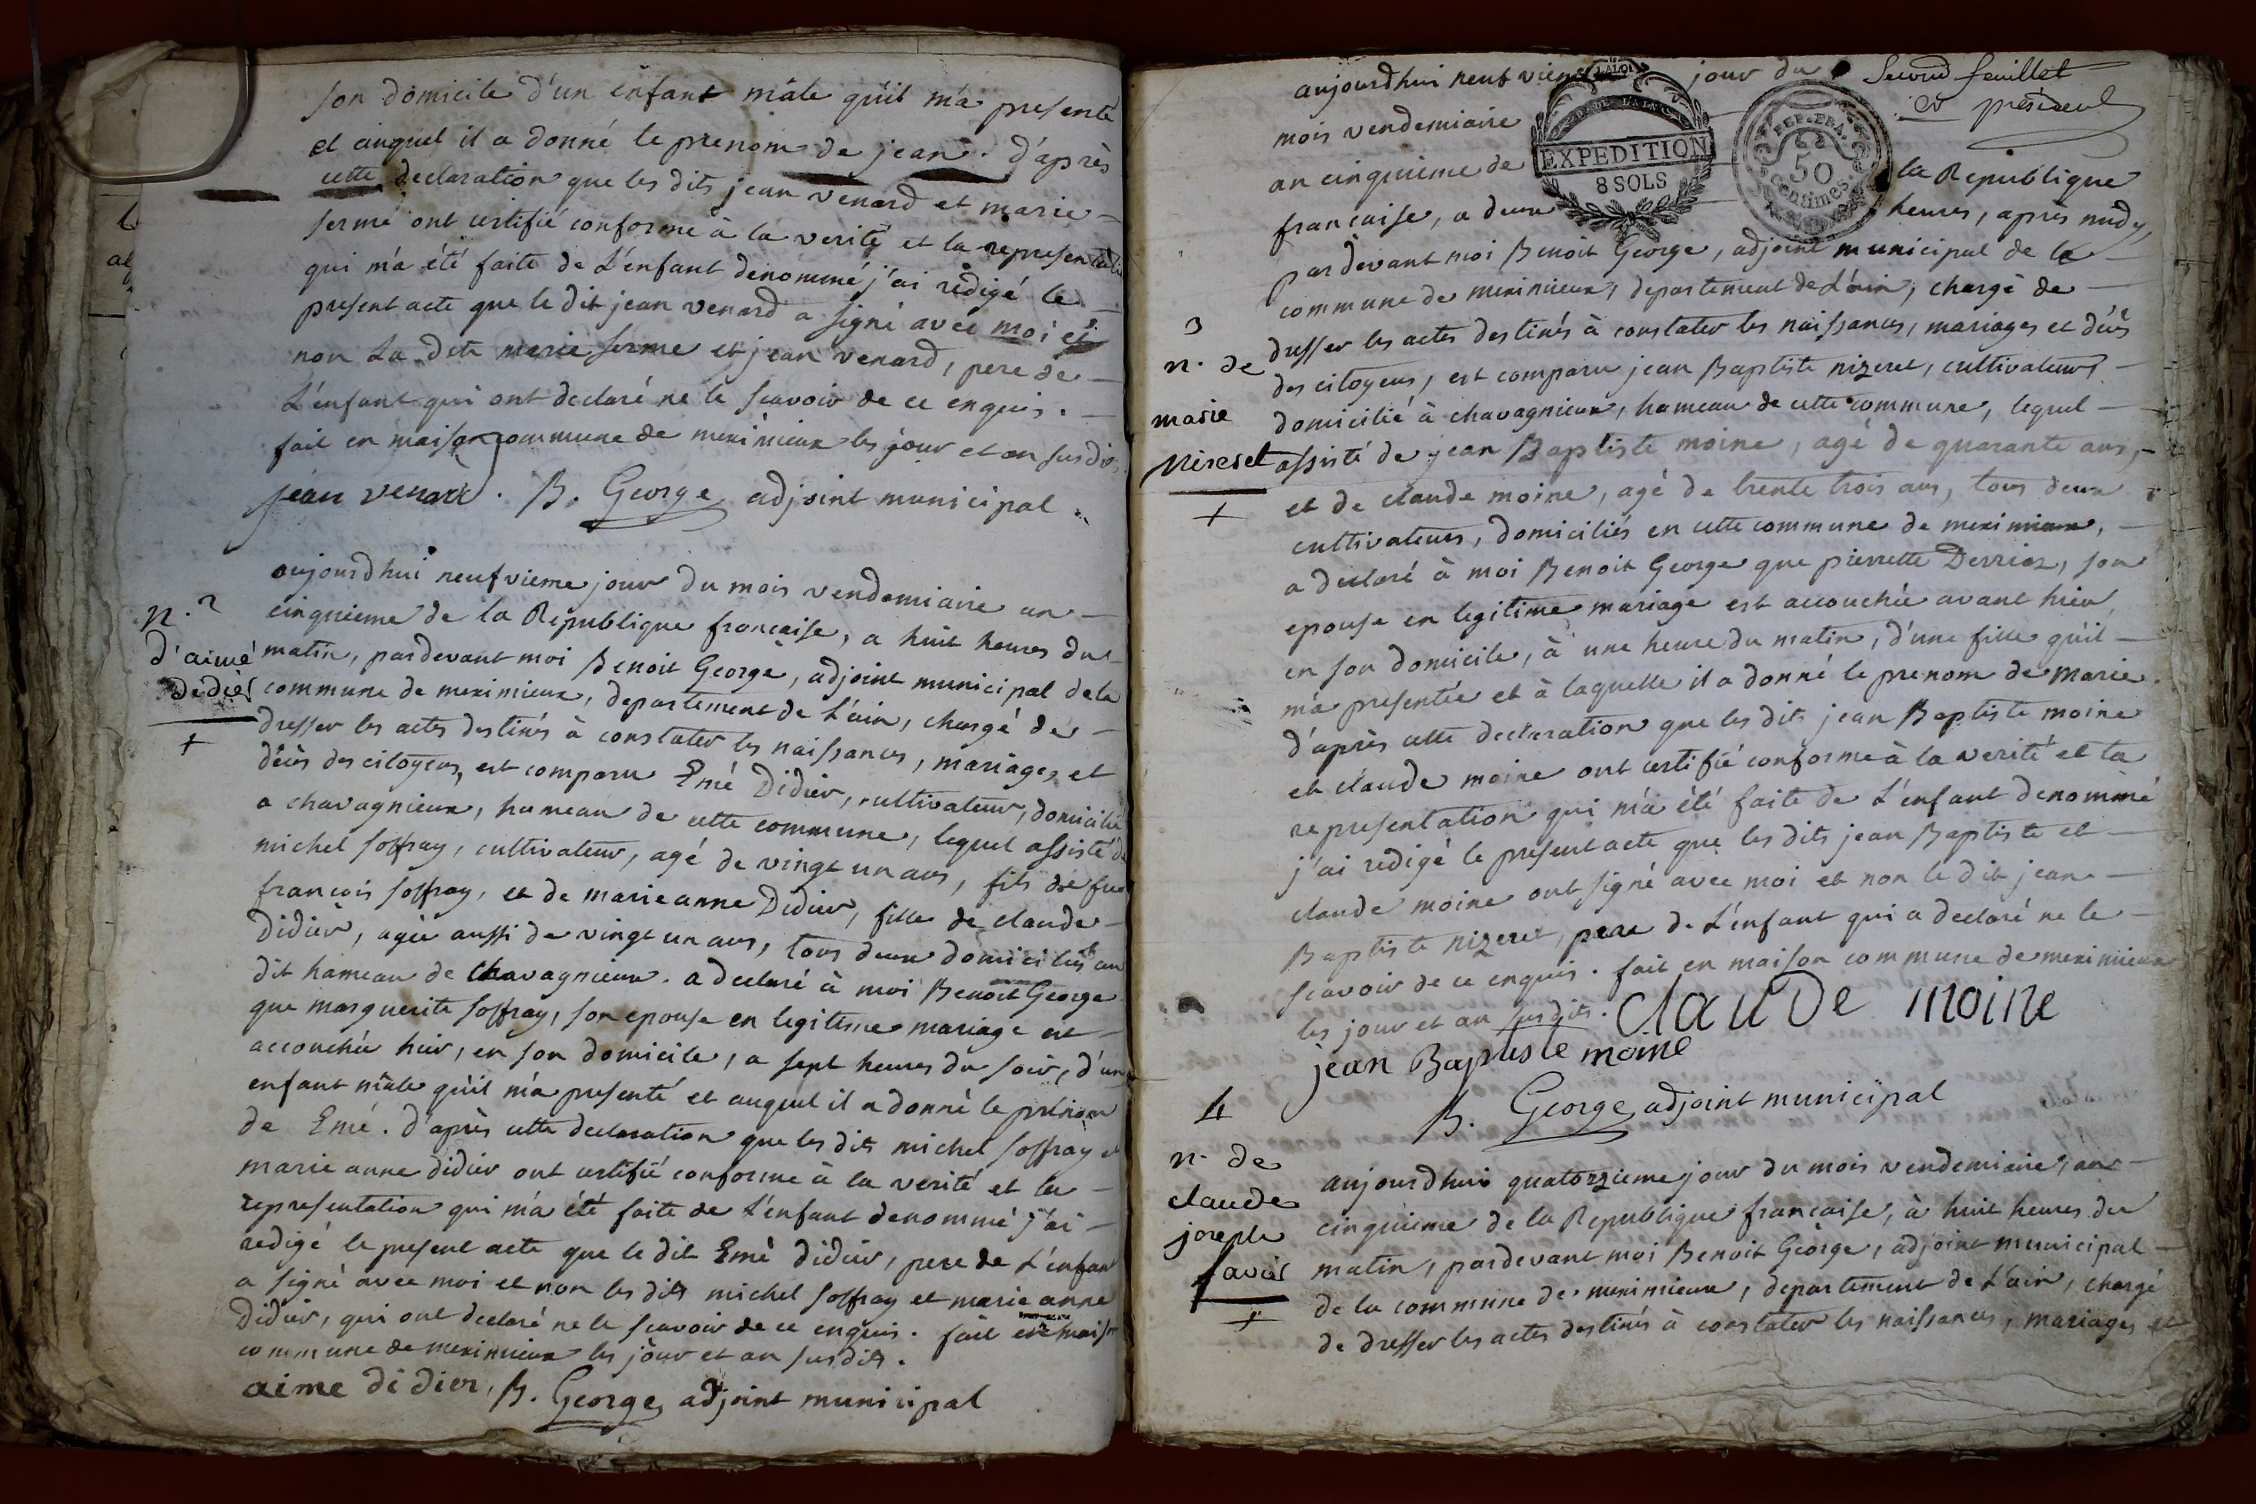 son domicile d'un enfant mâle qu'il m'a presenté
et auquel il a donné le prenom de jean. d'après
cette declaration que les dits jean venard et marie
serme ont certifié conforme à la verité et la representation
qui m'a été faite de L'enfant denommé j'ai redigé le
present acte que le dit jean venard a signé avec moi et
non La dite marie serme et jean venard, pere de
L'enfant qui ont declaré ne le scavoir de ce enquis.
fait en maison commune de meximieux les jour et an susdits
jean venard. B. George adjoint municipal
n. 2
d'aimé
dedier
+
aujourdhui neufvieme jour du mois vendemiaire an
cinquieme de la Republique francaise, a huit heures du
matin, pardevant moi Benoit George, adjoint municipal de la
commune de meximieux, departement de L'ain, chargé de
dresser les actes destinés à constater les naissances, mariages et
décès des citoyens, est comparu Emé Didier, cultivateur, domicilié
a chavagnieux, hameau de cette commune, lequel assisté de
michel soffray, cultivateur, agé de vingt un ans, fils de feu
francois soffray, et de marieanne Didier, fille de claude
Didier, agée aussi de vingt un ans, tous deux domiciliés au
dit hameau de Chavagnieux. a declaré à moi Benoit George
que marguerite soffray, son epouse en legitime mariage est
accouchée hier, en son domicile, a sept heures du soir, d'un
enfant mâle qu'il m'a presenté et auquel il a donné le prénom
de Emé. d'après cette declaration que les dits michel soffray et
marie anne didier ont certifié conforme à la verité et la
representation qui m'a été faite de L'enfant denommé j'ai
redigé le present acte que le dit Emé didier, pere de L'enfant
a signé avec moi et non les dits michel soffray et marie anne
Didier, qui ont declaré ne le scavoir de ce enquis. fait en maison
commune de meximieux les jour et an susdits.
aime didier, B. George adjoint municipal
Second feuillet
EXPEDITION
8 SOLS
REP. FRA.
50
centimes
aujourdhui neuf vieme jour du
mois vendemiaire
an cinquieme de la Republique
francaise, a deux heures, après midy
pardevant moi Benoit George, adjoint municipal de la
commune de meximieux, departement de L'ain, chargé de
3
n. de
marie
Niseret
+
dresser les actes destinés à constater les naissances, mariages et décès
des citoyens, est comparu jean Baptiste nizeret, cultivateur
domicilié à chavagnieux, hameau de cette commune, lequel
assisté de jean Baptiste moine, agé de quarante ans,
et de claude moine, agé de trente trois ans, tous deux
cultivateurs, domiciliés en cette commune de meximieux,
a declaré à moi Benoit George que pierrette Derrios, son
epouse en legitime mariage est accouchée avant hier
en son domicile, à une heure du matin, d'une fille qu'il
m'a presentée et à laquelle il a donné le prenom de Marie.
d'après cette declaration que les dits jean Baptiste moine
et claude moine ont certifié conforme à la verité et la
representation qui m'a été faite de L'enfant denommé
j'ai redigé le present acte que les dits jean Baptiste et
claude moine ont signé avec moi et non le dit jean
Baptiste nizeret, pere de L'enfant qui a declaré ne le
scavoir de ce enquis. fait en maison commune de meximieux
les jour et an susdits. claude moine
jean Baptiste moine
B. George adjoint municipal
4
n. de
claude
joseph
favier
+
aujourdhui quatorzieme jour du mois vendemiaire, an
cinquieme de la Republique francaise, à huit heures du
matin, pardevant moi Benoit George, adjoint municipal
de la commune de meximieux, departement de L'ain, chargé
de dresser les actes destinés à constater les naissances, mariages et